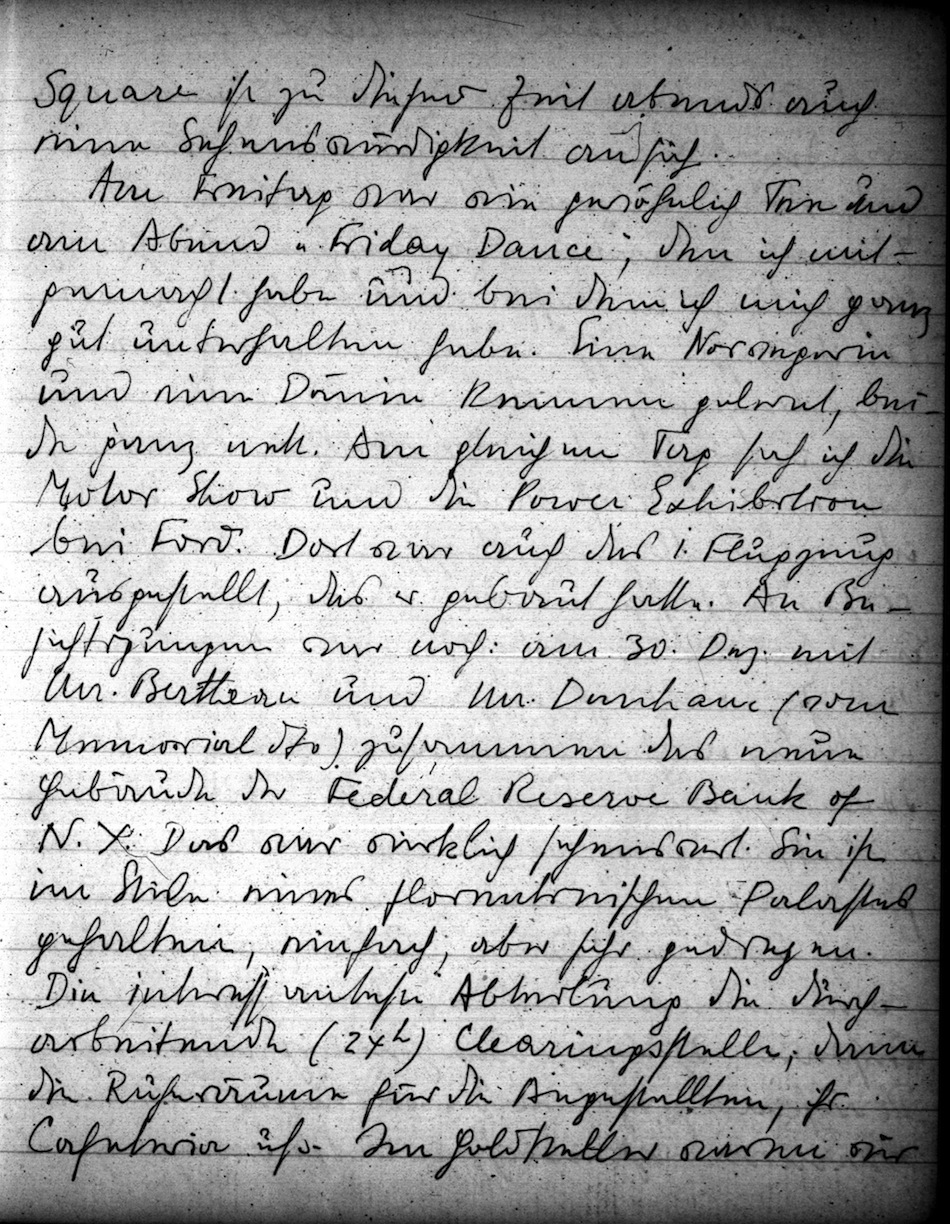 Square ist zu dieser Zeit abends auch
eine Sehenswürdigkeit an sich.
Am Freitag war wie gewöhnlich Tee und
am Abend "Friday Dance", den ich mit-
gemacht habe und bei dem ich mich ganz
gut unterhalten habe. Eine Norwegerin
und eine Dänin kennen gelernt, bei-
de ganz nett. Am gleichen Tag sah ich die
Motor Show und die Power Exhibition
bei Ford. Dort war auch das 1. Flugzeug
ausgestellt, das er gebaut hatte. An Be-
sichtigungen war noch: am 30. Dez. mit
Mr. Bertheau und Mr. Dunham (vom
Memorial) zusammen das neue
Gebäude der Federal Reserve Bank of
N.Y. Das war wirklich sehenswert. Sie ist
im Stile eines florentinischen Palastes
gehalten, einfach, aber sehr gediegen.
Die interessanteste Abteilung die durch-
arbeitende (24h) Clearingsstelle, dann
die Ruheräume für die Angestellten, ihr
Cafeteria usw. Im Goldkeller waren wir